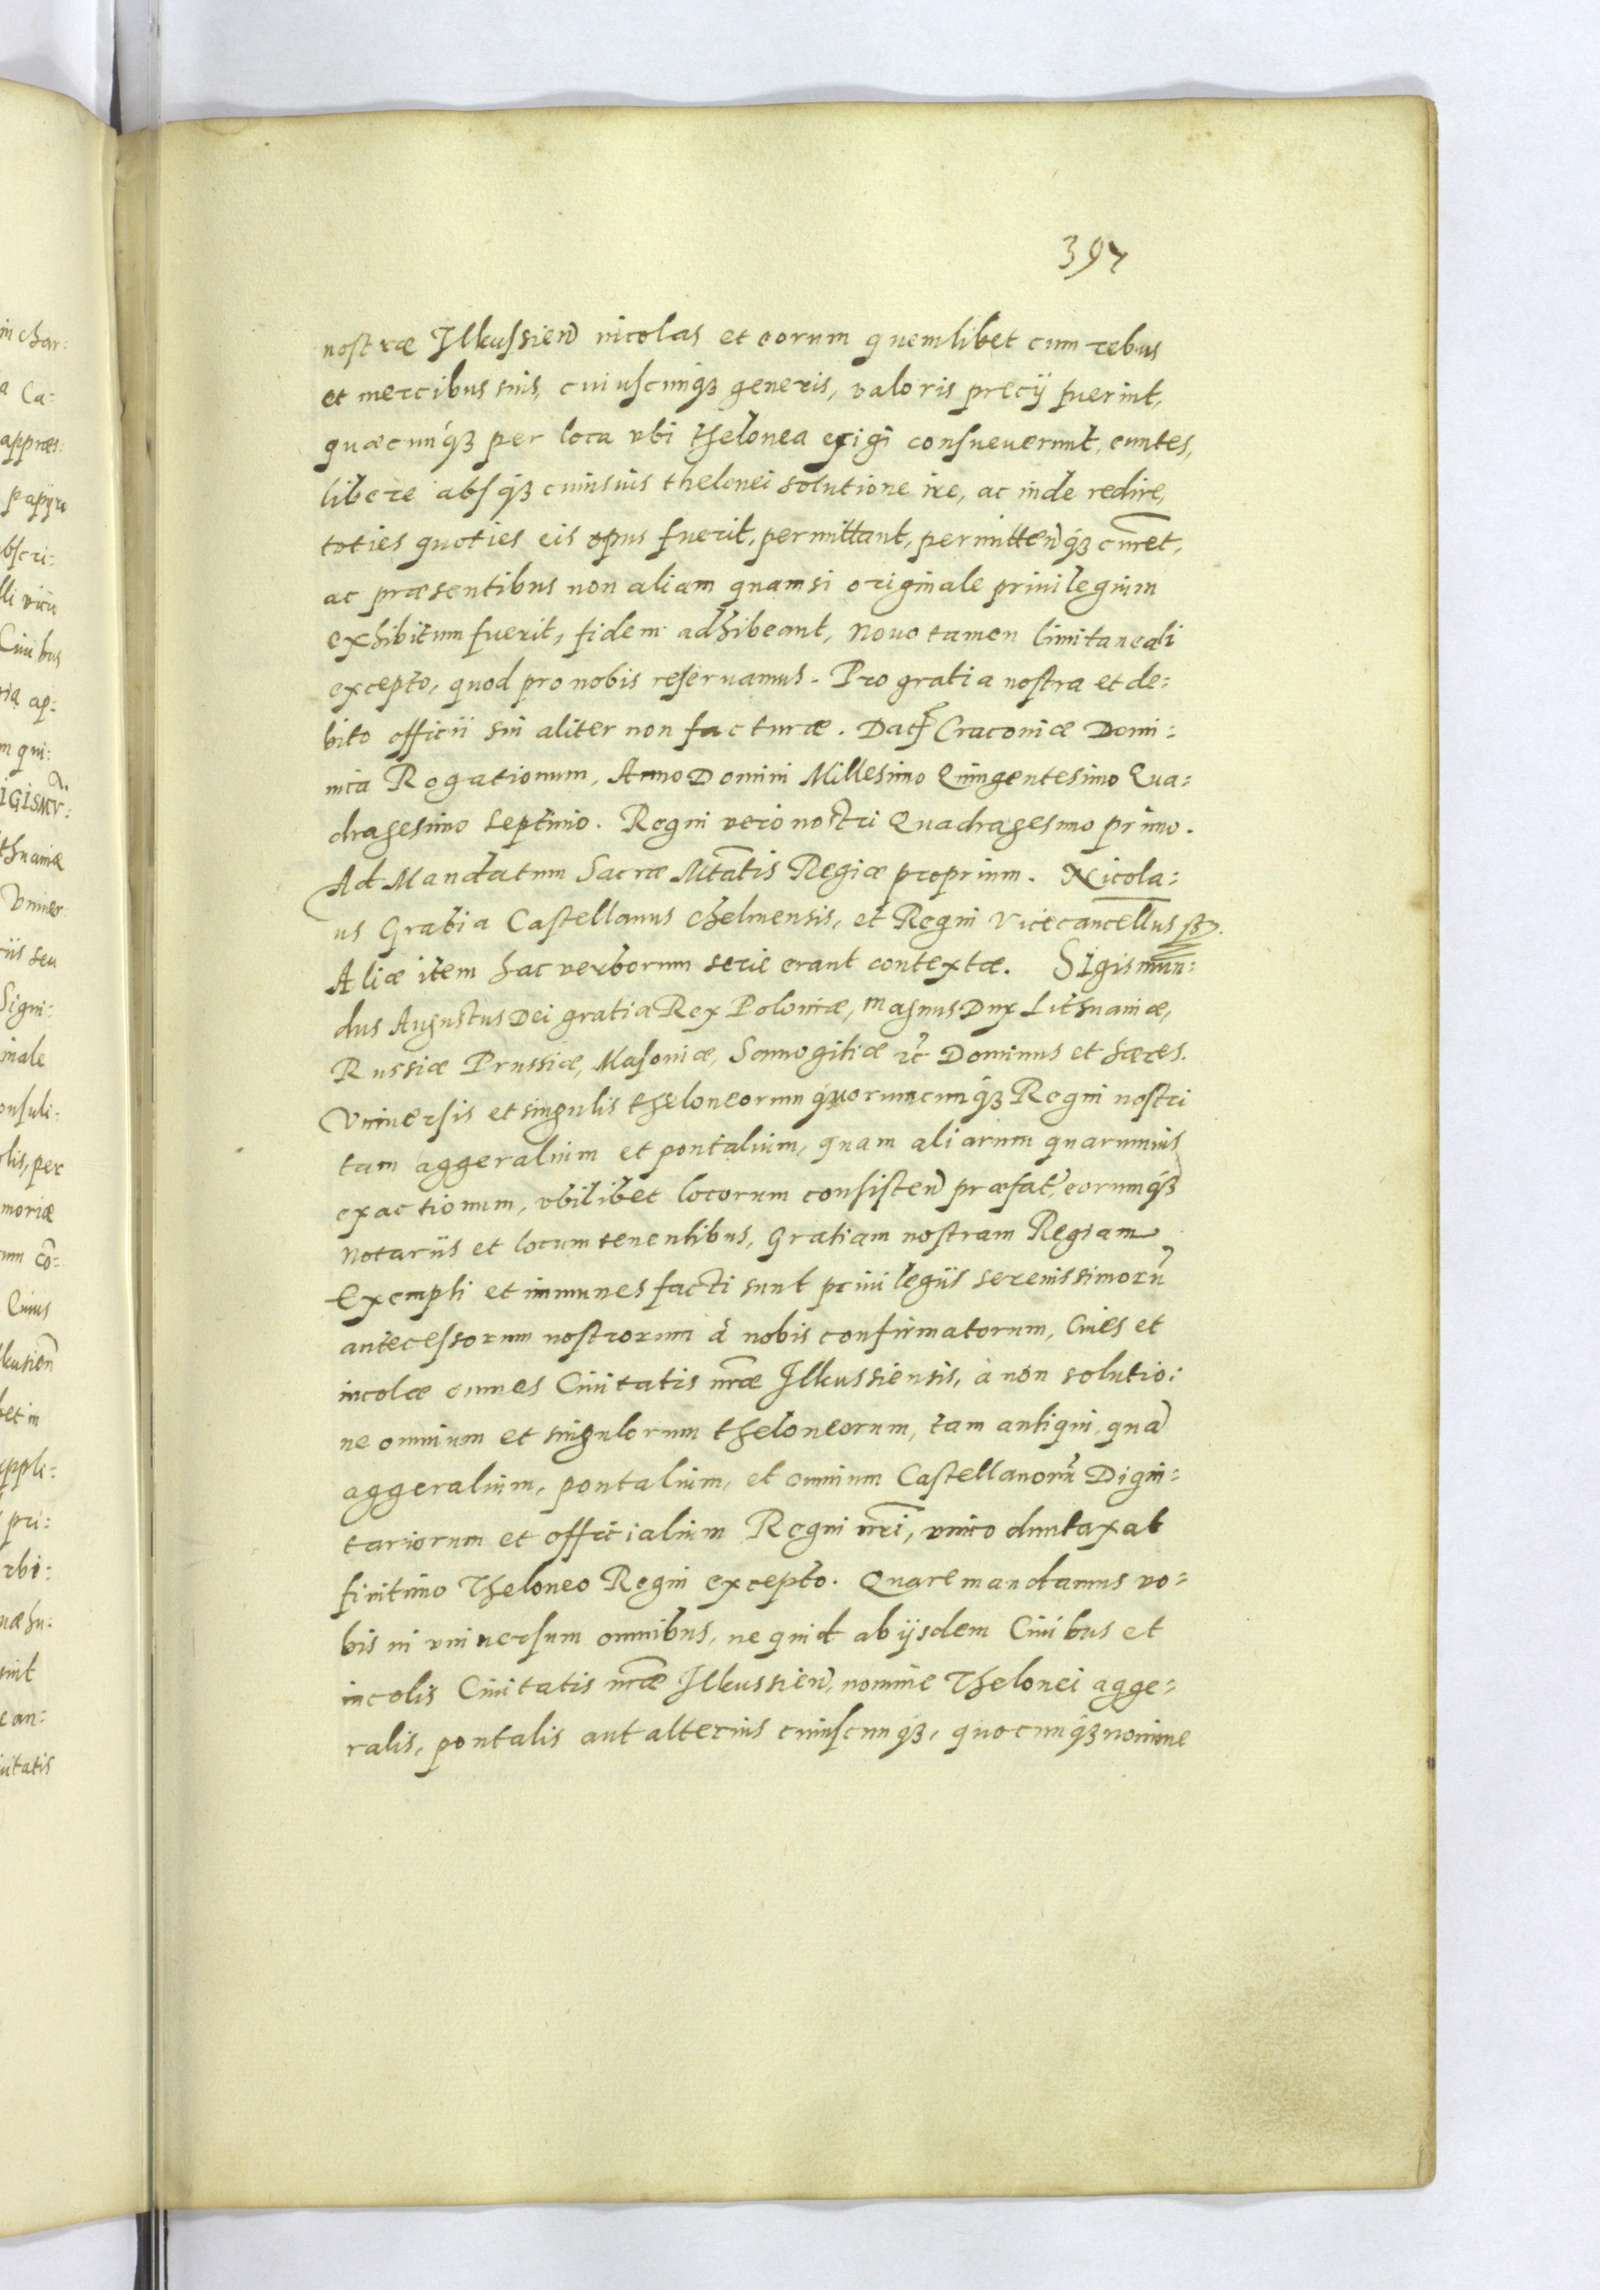 397
nostræ Ilkussien̄ incolas et eorum quemlibet cum rebus
et mercibus suis, cuiuscunq3 generis, valoris precÿ fuerint,
quæcunq3 per loca vbi thelonea exigi consueuerunt, euntes,
libere absq3 cuiusuis thelonei solutione ire, ac inde redire,
toties quoties eis opus fuerit, permittant, permitten̄q3 curet,
ac præsentibus non aliam quam si originale priuilegium
exhibitum fuerit, fidem adhibeant, Nouo tamen limitaneali
excepto, quod pro nobis reseruamus. Pro gratia nostra et de=
bito officii sui aliter non facturæ. Dat̄ Cracouiæ Domi=
nica Rogationum, Anno Domini Millesimo Quingentesimo Qua=
dragesimo Septimo. Regni vero nostri Quadragesimo primo.
Ad Mandatum Sacræ Mtātis Regiæ proprium. Nicola=
us Grabia Castellanus Chelmensis, et Regni Vicecancellus sst.
Aliæ item hac verborum serie erant contextæ. SIgismun=
dus Augustus Dei gratia Rex Poloniæ, Magnus Dux Lithuaniæ,
Russiæ Prussiæ, Masouiæ, Samogitiæ etc̄ Dominus et hæres.
Vniuersis et singulis theloneorum quorumcunq3 Regni nostri
tam aggeralium et pontalium, quam aliarum quarumuis
exactionum, vbilibet locorum consisten̄ præfat̄, eorumq3
Notariis et locum tenentibus, Gratiam nostram Regiam
Exempti et immunes facti sunt priuilegiis serenissimorū
antecessorum nostrorum à nobis confirmatorum, Ciues et
incolæ omnes Ciuitatis nr̄æ Ilkussiensis, à non solutio:
ne omnium et singulorum theloneorum, tam antiqui, quā
aggeralium, pontalium, et omnium Castellanorū Digni=
tariorum et officialium Regni nr̄i, vnico duntaxat
finitimo Theloneo Regni excepto. Quare mandamus vo=
bis in vniuersum omnibus, ne quid ab ijsdem Ciuibus et
incolis Ciuitatis nr̄æ Ilkussien̄, nomine Thelonei agge=
ralis, pontalis aut alterius cuiuscunq3, quocunq3 nomine